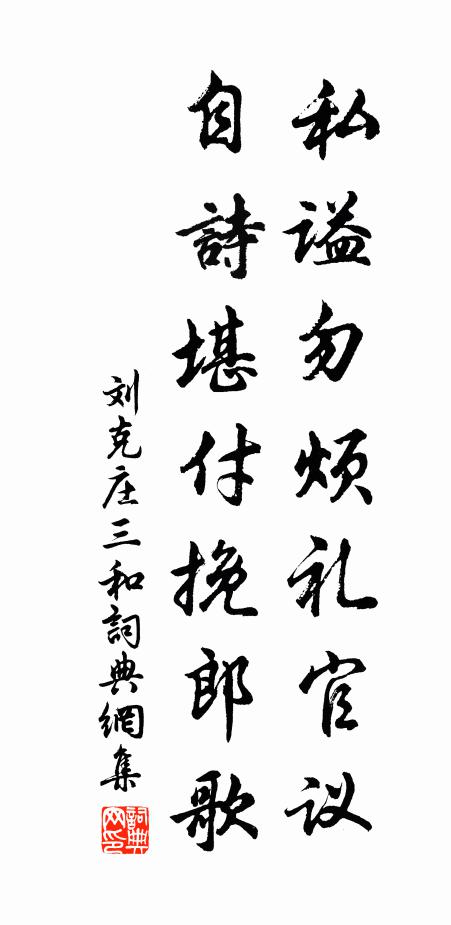 私谥勿烦礼官议
自詩堪付挽郎歌
刘克庄三和詞典網集
詞典网印